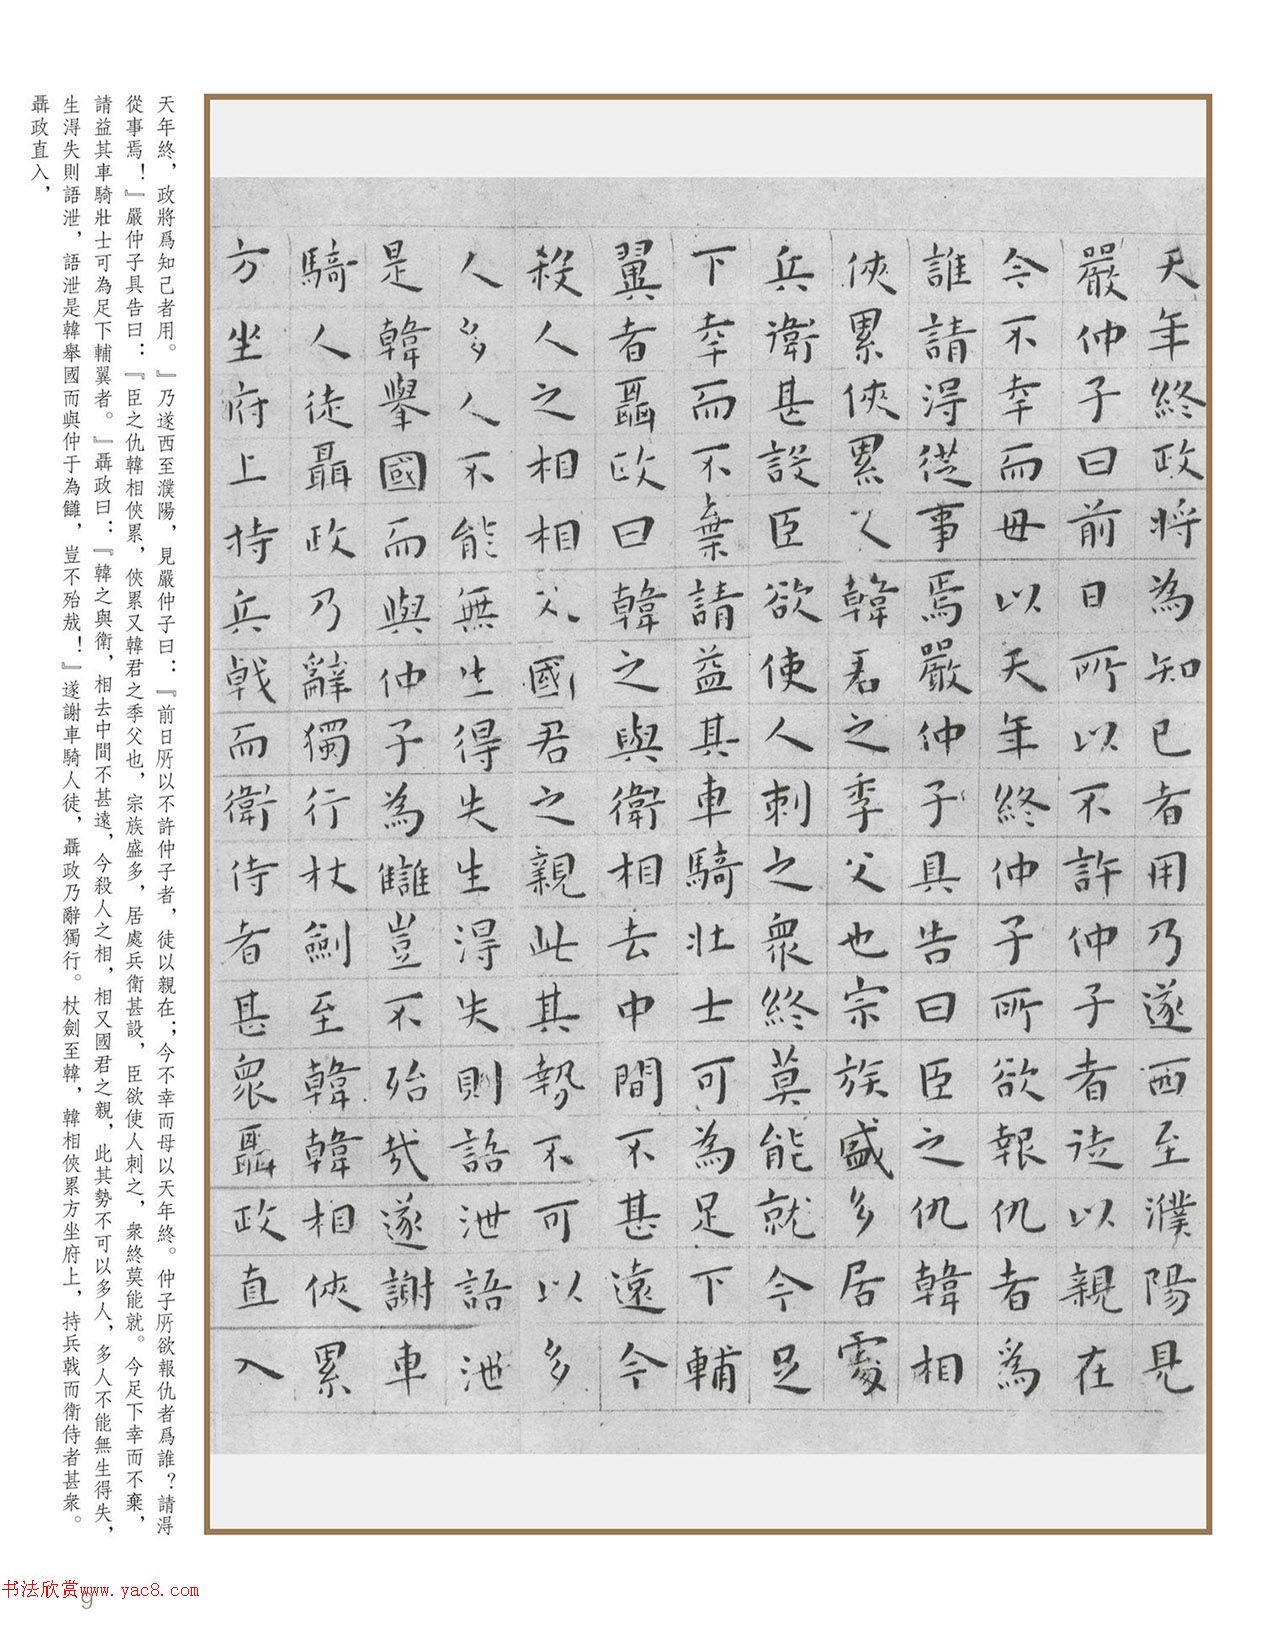 天年終政將為知己者用乃遂西至濮陽見
嚴仲子曰前日所以不許仲子者徒以親在
今不幸而母以天年終仲子所欲報仇者為
誰請淂從事焉嚴仲子具告曰臣之仇韓相
俠累俠累又韓君之季父也宗族盛多居處
兵衛甚設臣欲使人刺之衆終莫能就今足
下幸而不棄請益其車騎壯士可為足下輔
翼者聶政曰韓之與衛相去中間不甚遠今
殺人之相相又國君之親此其勢不可以多
人多人不能無生得失生淂失則語泄語泄
是韓舉國而與仲子為讎豈不殆哉遂謝車
騎人徒聶政乃辭獨行杖劍至韓韓相俠累
方坐府上持兵戟而衛侍者甚衆聶政直入
天年終，政將爲知己者用。』乃遂西至濮陽，見嚴仲子曰：『前日所以不許仲子者，徒以親在；今不幸而母以天年終。仲子所欲報仇者爲誰？請淂
從事焉！』嚴仲子具告曰：『臣之仇韓相俠累，俠累又韓君之季父也，宗族盛多，居處兵衛甚設，臣欲使人刺之，衆終莫能就。今足下幸而不棄，
請益其車騎壯士可為足下輔翼者。』聶政曰：『韓之與衛，相去中間不甚遠，今殺人之相，相又國君之親，此其勢不可以多人，多人不能無生得失，
生淂失則語泄，語泄是韓舉國而與仲于為讎，豈不殆哉！』遂謝車騎人徒，聶政乃辭獨行。杖劍至韓，韓相俠累方坐府上，持兵戟而衛侍者甚衆。
聶政直入，
书法欣赏www.yac8.com
9